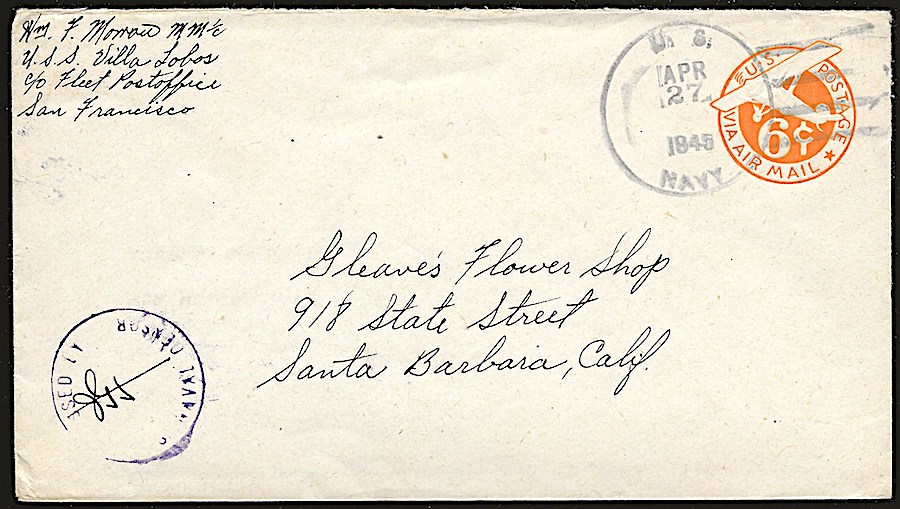 Wm. F. Morrow MM1/c
U.S.S. Villa Lobos
c/o Fleet Postoffice
San Francisco
U. S.
APR
27
1945
NAVY
U.S. POSTAGE
6¢
VIA AIR MAIL
Gleave's Flower Shop
918 State Street
Santa Barbara, Calif.
NAVAL CENSOR